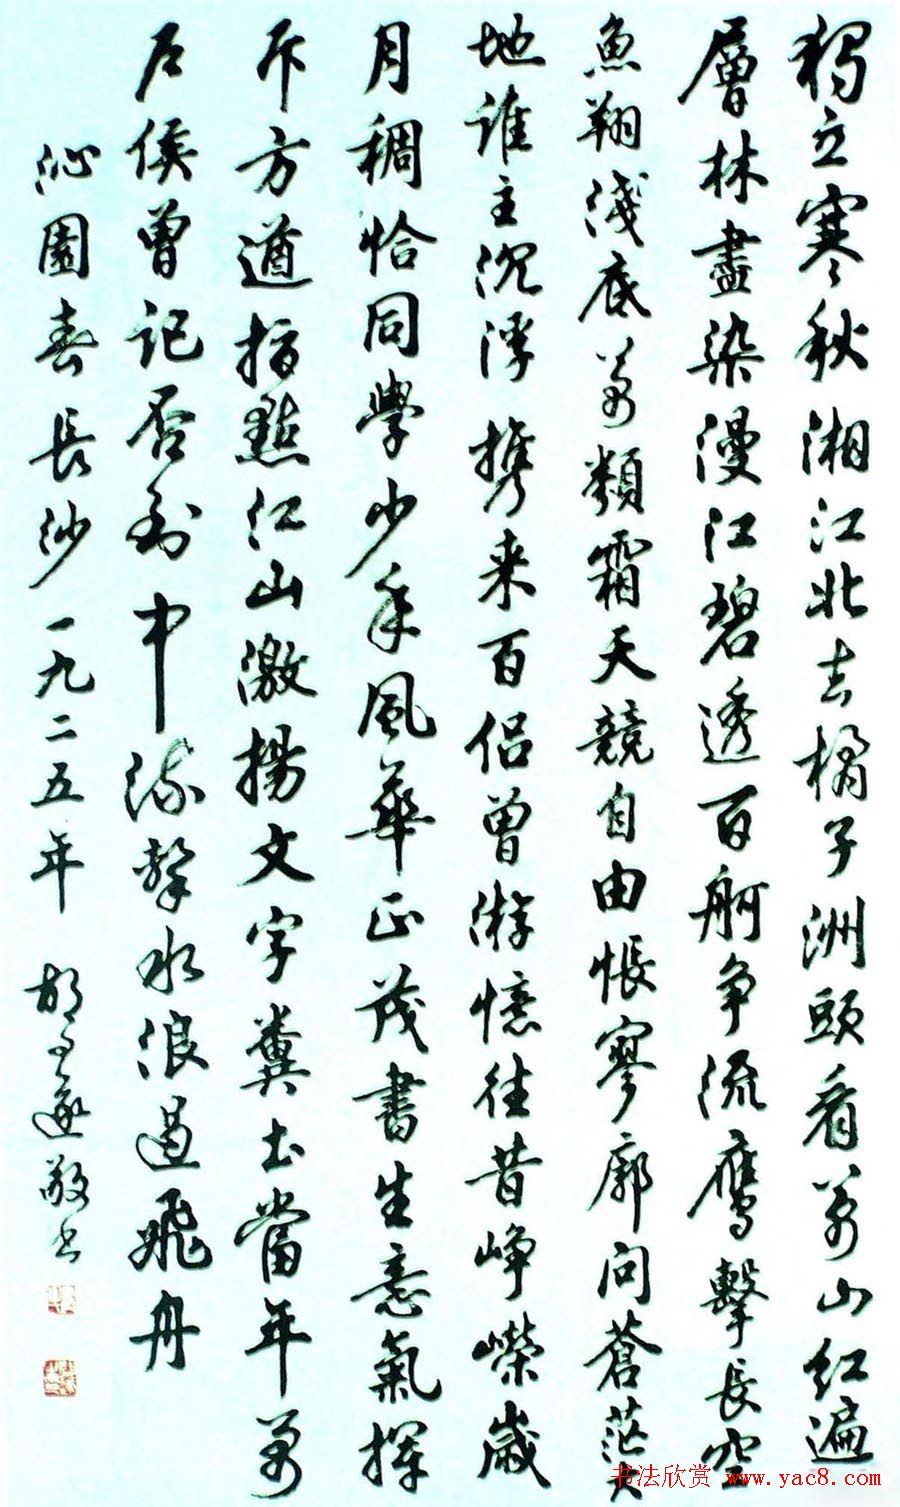 獨立寒秋湘江北去橘子洲頭看萬山紅遍
層林盡染漫江碧透百舸争流鷹擊長空
魚翔淺底萬類霜天競自由悵寥廓問蒼茫大
地誰主沉浮携来百侣曾游憶往昔崢嶸歲
月稠恰同學少年風華正茂書生意氣揮
斥方遒指點江山激揚文字糞土當年萬
户侯曾記否到中流擊水浪遏飛舟
沁園春長沙一九二五年 胡问遂敬书
书法欣赏 www.yac8.com